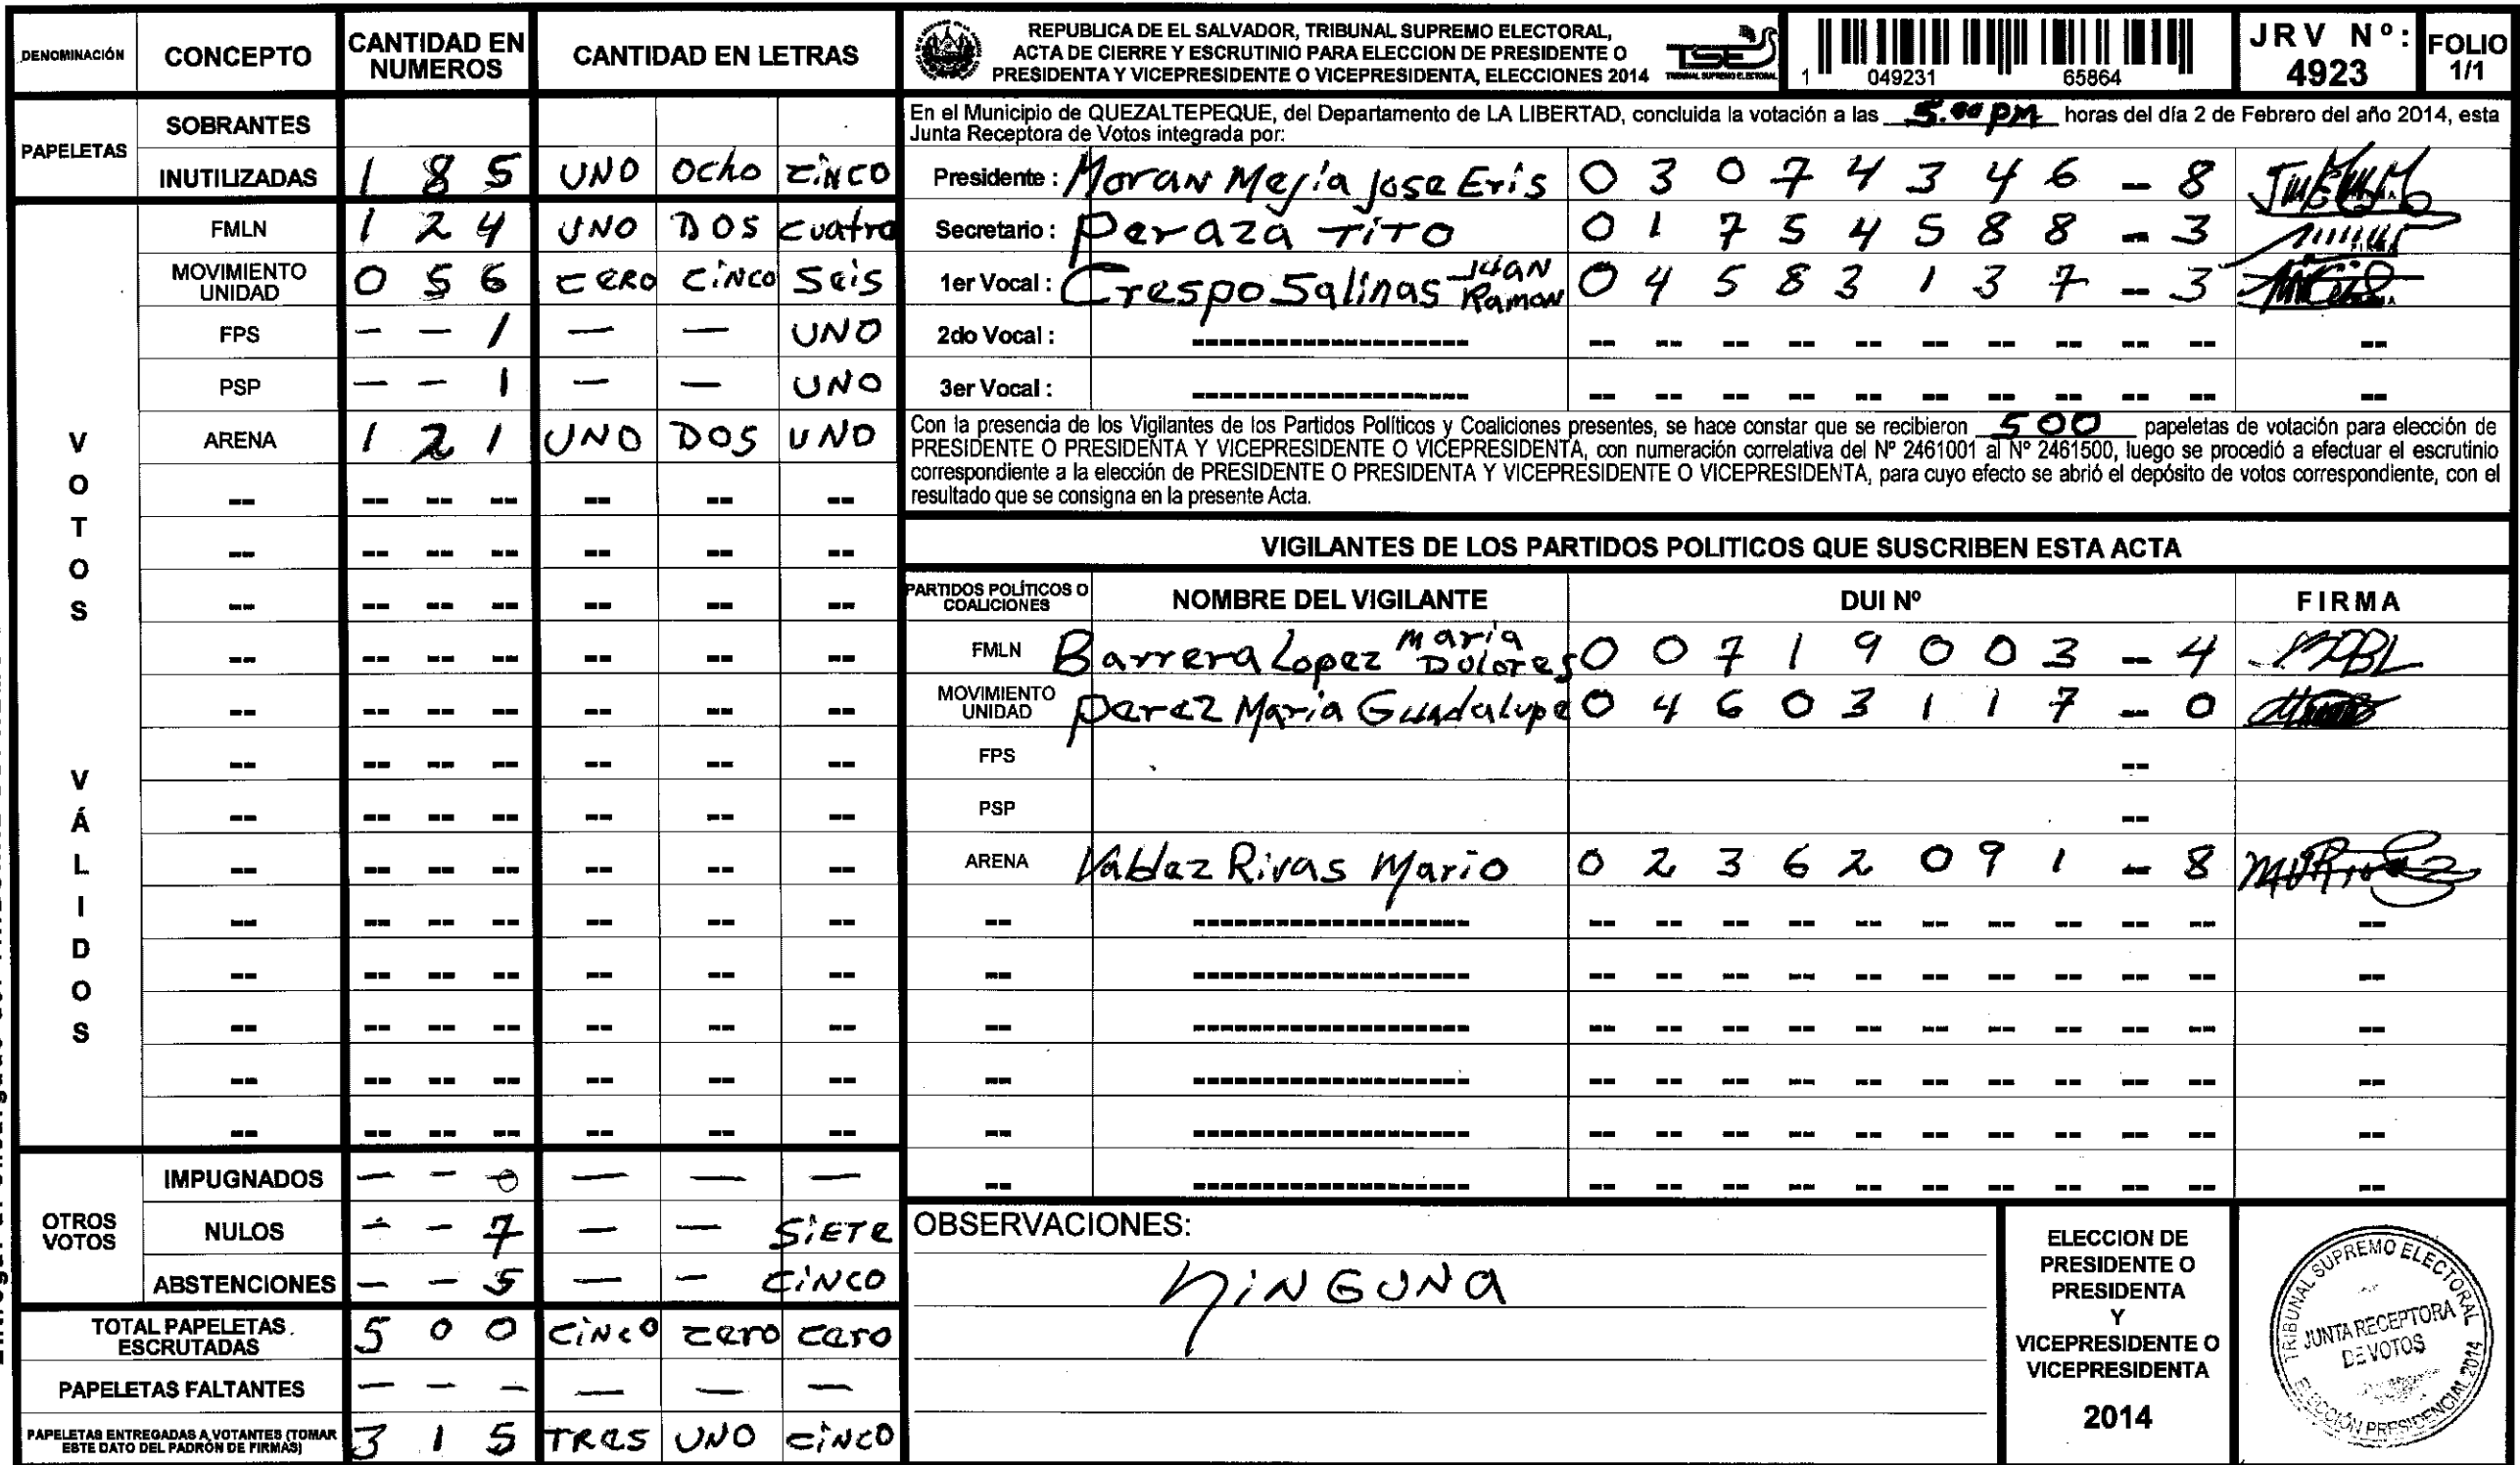 DENOMINACIÓN CONCEPTO CANTIDAD EN NUMEROS CANTIDAD EN LETRAS
PAPELETAS
SOBRANTES
INUTILIZADAS 1 8 5 UNO Ocho CiNCO
VOTOS VÁLIDOS
FMLN 1 2 4 UNO DOS cuatro
MOVIMIENTO UNIDAD 0 5 6 CERO CiNCO Seis
FPS — — 1 — — UNO
PSP — — 1 — — UNO
ARENA 1 2 1 UNO DOS UNO
OTROS VOTOS
IMPUGNADOS — — 0 — — —
NULOS — — 7 — — SiETE
ABSTENCIONES — — 5 — — CiNCO
TOTAL PAPELETAS ESCRUTADAS 5 0 0 CiNCO zero cero
PAPELETAS FALTANTES — — — — — —
PAPELETAS ENTREGADAS A VOTANTES (TOMAR ESTE DATO DEL PADRÓN DE FIRMAS) 3 1 5 TRES UNO CiNCO
REPUBLICA DE EL SALVADOR, TRIBUNAL SUPREMO ELECTORAL,
ACTA DE CIERRE Y ESCRUTINIO PARA ELECCION DE PRESIDENTE O
PRESIDENTA Y VICEPRESIDENTE O VICEPRESIDENTA, ELECCIONES 2014
TSE
TRIBUNAL SUPREMO ELECTORAL
1 049231 65864
JRV Nº: 4923
FOLIO 1/1
En el Municipio de QUEZALTEPEQUE, del Departamento de LA LIBERTAD, concluida la votación a las 5.00 PM horas del día 2 de Febrero del año 2014, esta
Junta Receptora de Votos integrada por:
Presidente : Moran Mejia Jose Eris 0 3 0 7 4 3 4 6 - 8
Secretario : Peraza Tito 0 1 7 5 4 5 8 8 - 3
1er Vocal : Crespo Salinas Juan Ramon 0 4 5 8 3 1 3 7 - 3
2do Vocal :
3er Vocal :
Con la presencia de los Vigilantes de los Partidos Políticos y Coaliciones presentes, se hace constar que se recibieron 500 papeletas de votación para elección de
PRESIDENTE O PRESIDENTA Y VICEPRESIDENTE O VICEPRESIDENTA, con numeración correlativa del Nº 2461001 al Nº 2461500, luego se procedió a efectuar el escrutinio
correspondiente a la elección de PRESIDENTE O PRESIDENTA Y VICEPRESIDENTE O VICEPRESIDENTA, para cuyo efecto se abrió el depósito de votos correspondiente, con el
resultado que se consigna en la presente Acta.
VIGILANTES DE LOS PARTIDOS POLITICOS QUE SUSCRIBEN ESTA ACTA
PARTIDOS POLÍTICOS O COALICIONES NOMBRE DEL VIGILANTE DUI Nº FIRMA
FMLN Barrera Lopez Maria Dolores 0 0 7 1 9 0 0 3 - 4 MDBL
MOVIMIENTO UNIDAD Perez Maria Guadalupe 0 4 6 0 3 1 1 7 - 0
FPS --
PSP --
ARENA Valdez Rivas Mario 0 2 3 6 2 0 9 1 - 8
OBSERVACIONES:
NiNGUNA
ELECCION DE
PRESIDENTE O
PRESIDENTA
Y
VICEPRESIDENTE O
VICEPRESIDENTA
2014
TRIBUNAL SUPREMO ELECTORAL
JUNTA RECEPTORA
DE VOTOS
ELECCIÓN PRESIDENCIAL 2014